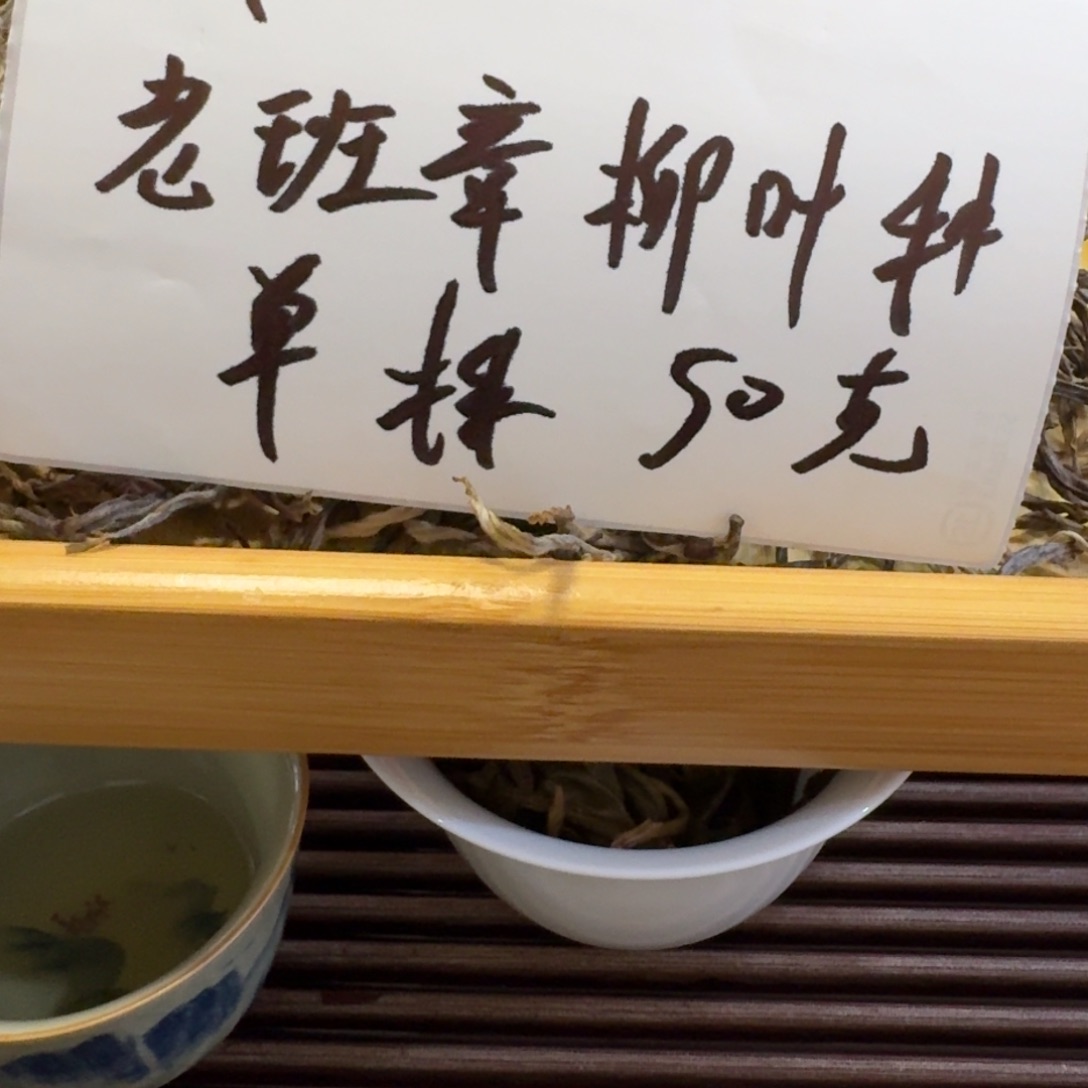 老班章柳叶种
单株 50克